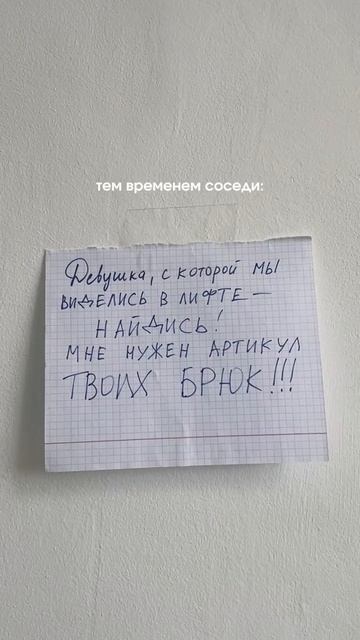 тем временем соседи:
Девушка, с которой мы
виделись в лифте —
найдись!
мне нужен артикул
твоих брюк!!!